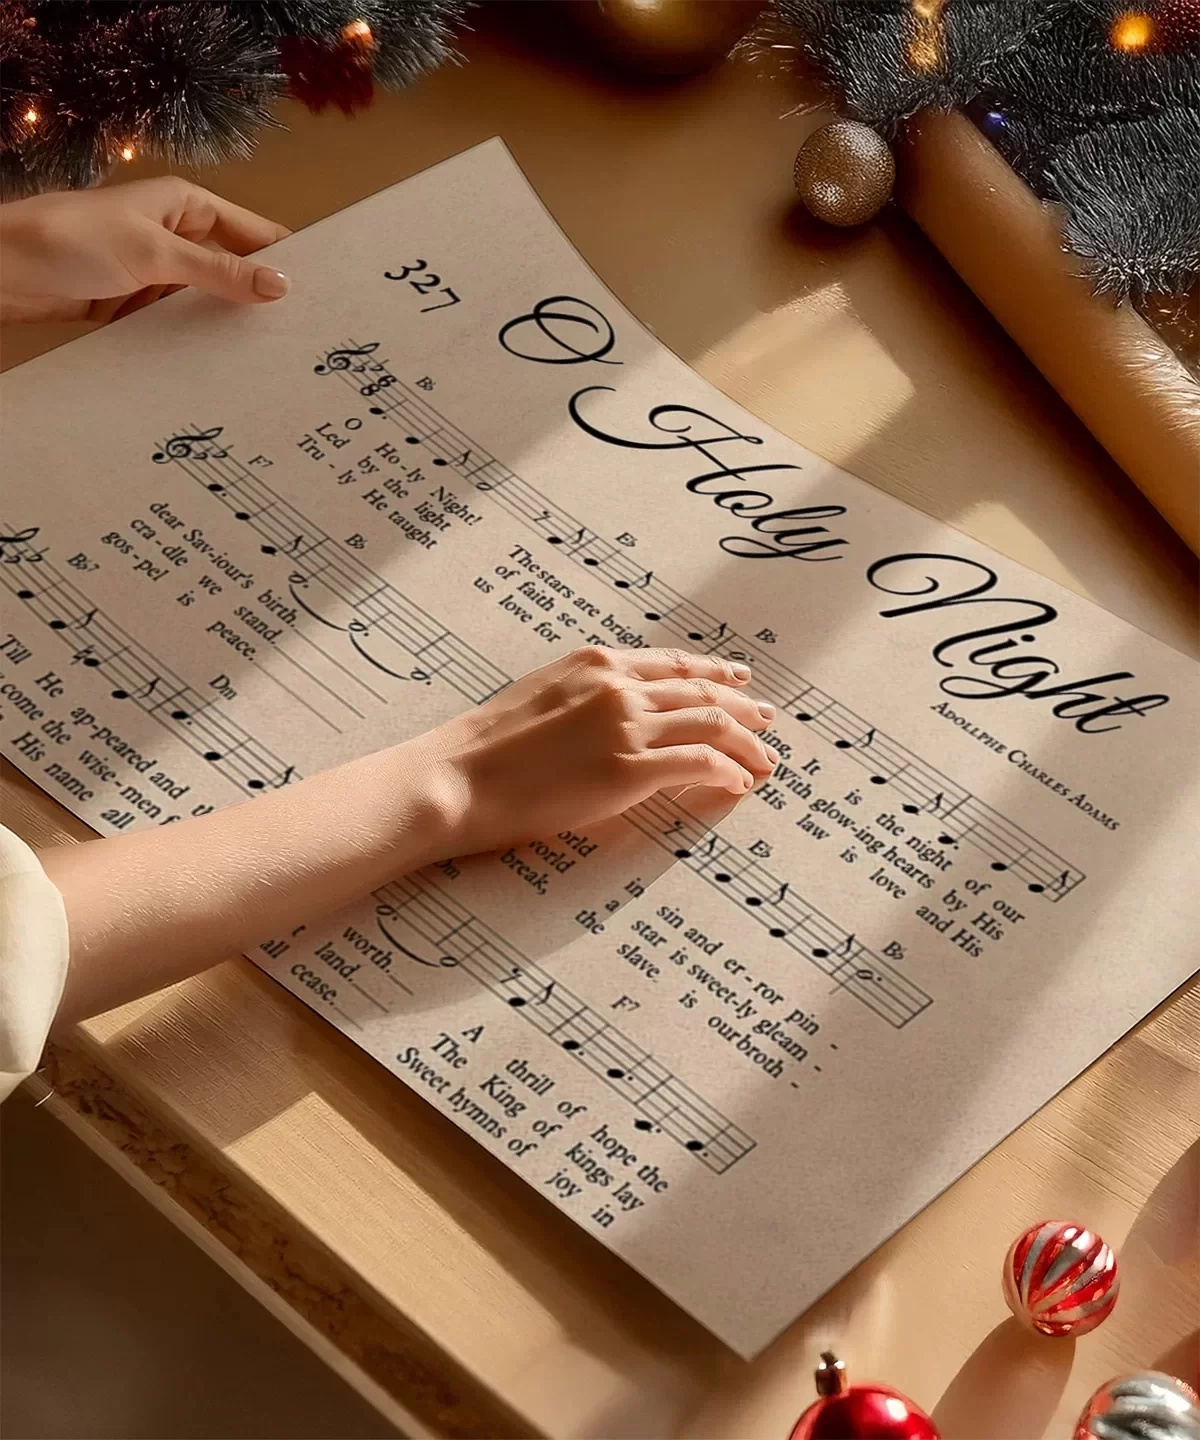 327
O Holy Night
Adollphe Charles Adams
B♭ E♭ B♭
O Ho-ly Night! The stars are bright ing, It is the night of our
Led by the light of faith se-re With glow-ing hearts by His
Tru-ly He taught us love for His law is love and His
F7 B♭ E♭ B♭
dear Sav-iour's birth. orld in sin and er-ror pin -
cra-dle we stand. world a star is sweet-ly gleam -
gos-pel is peace. break, the slave is our broth -
B♭7 Dm Dm F7
Till He ap-peared and worth. A thrill of hope the
come the wise-men land. The King of kings lay
His name all all cease. Sweet hymns of joy in